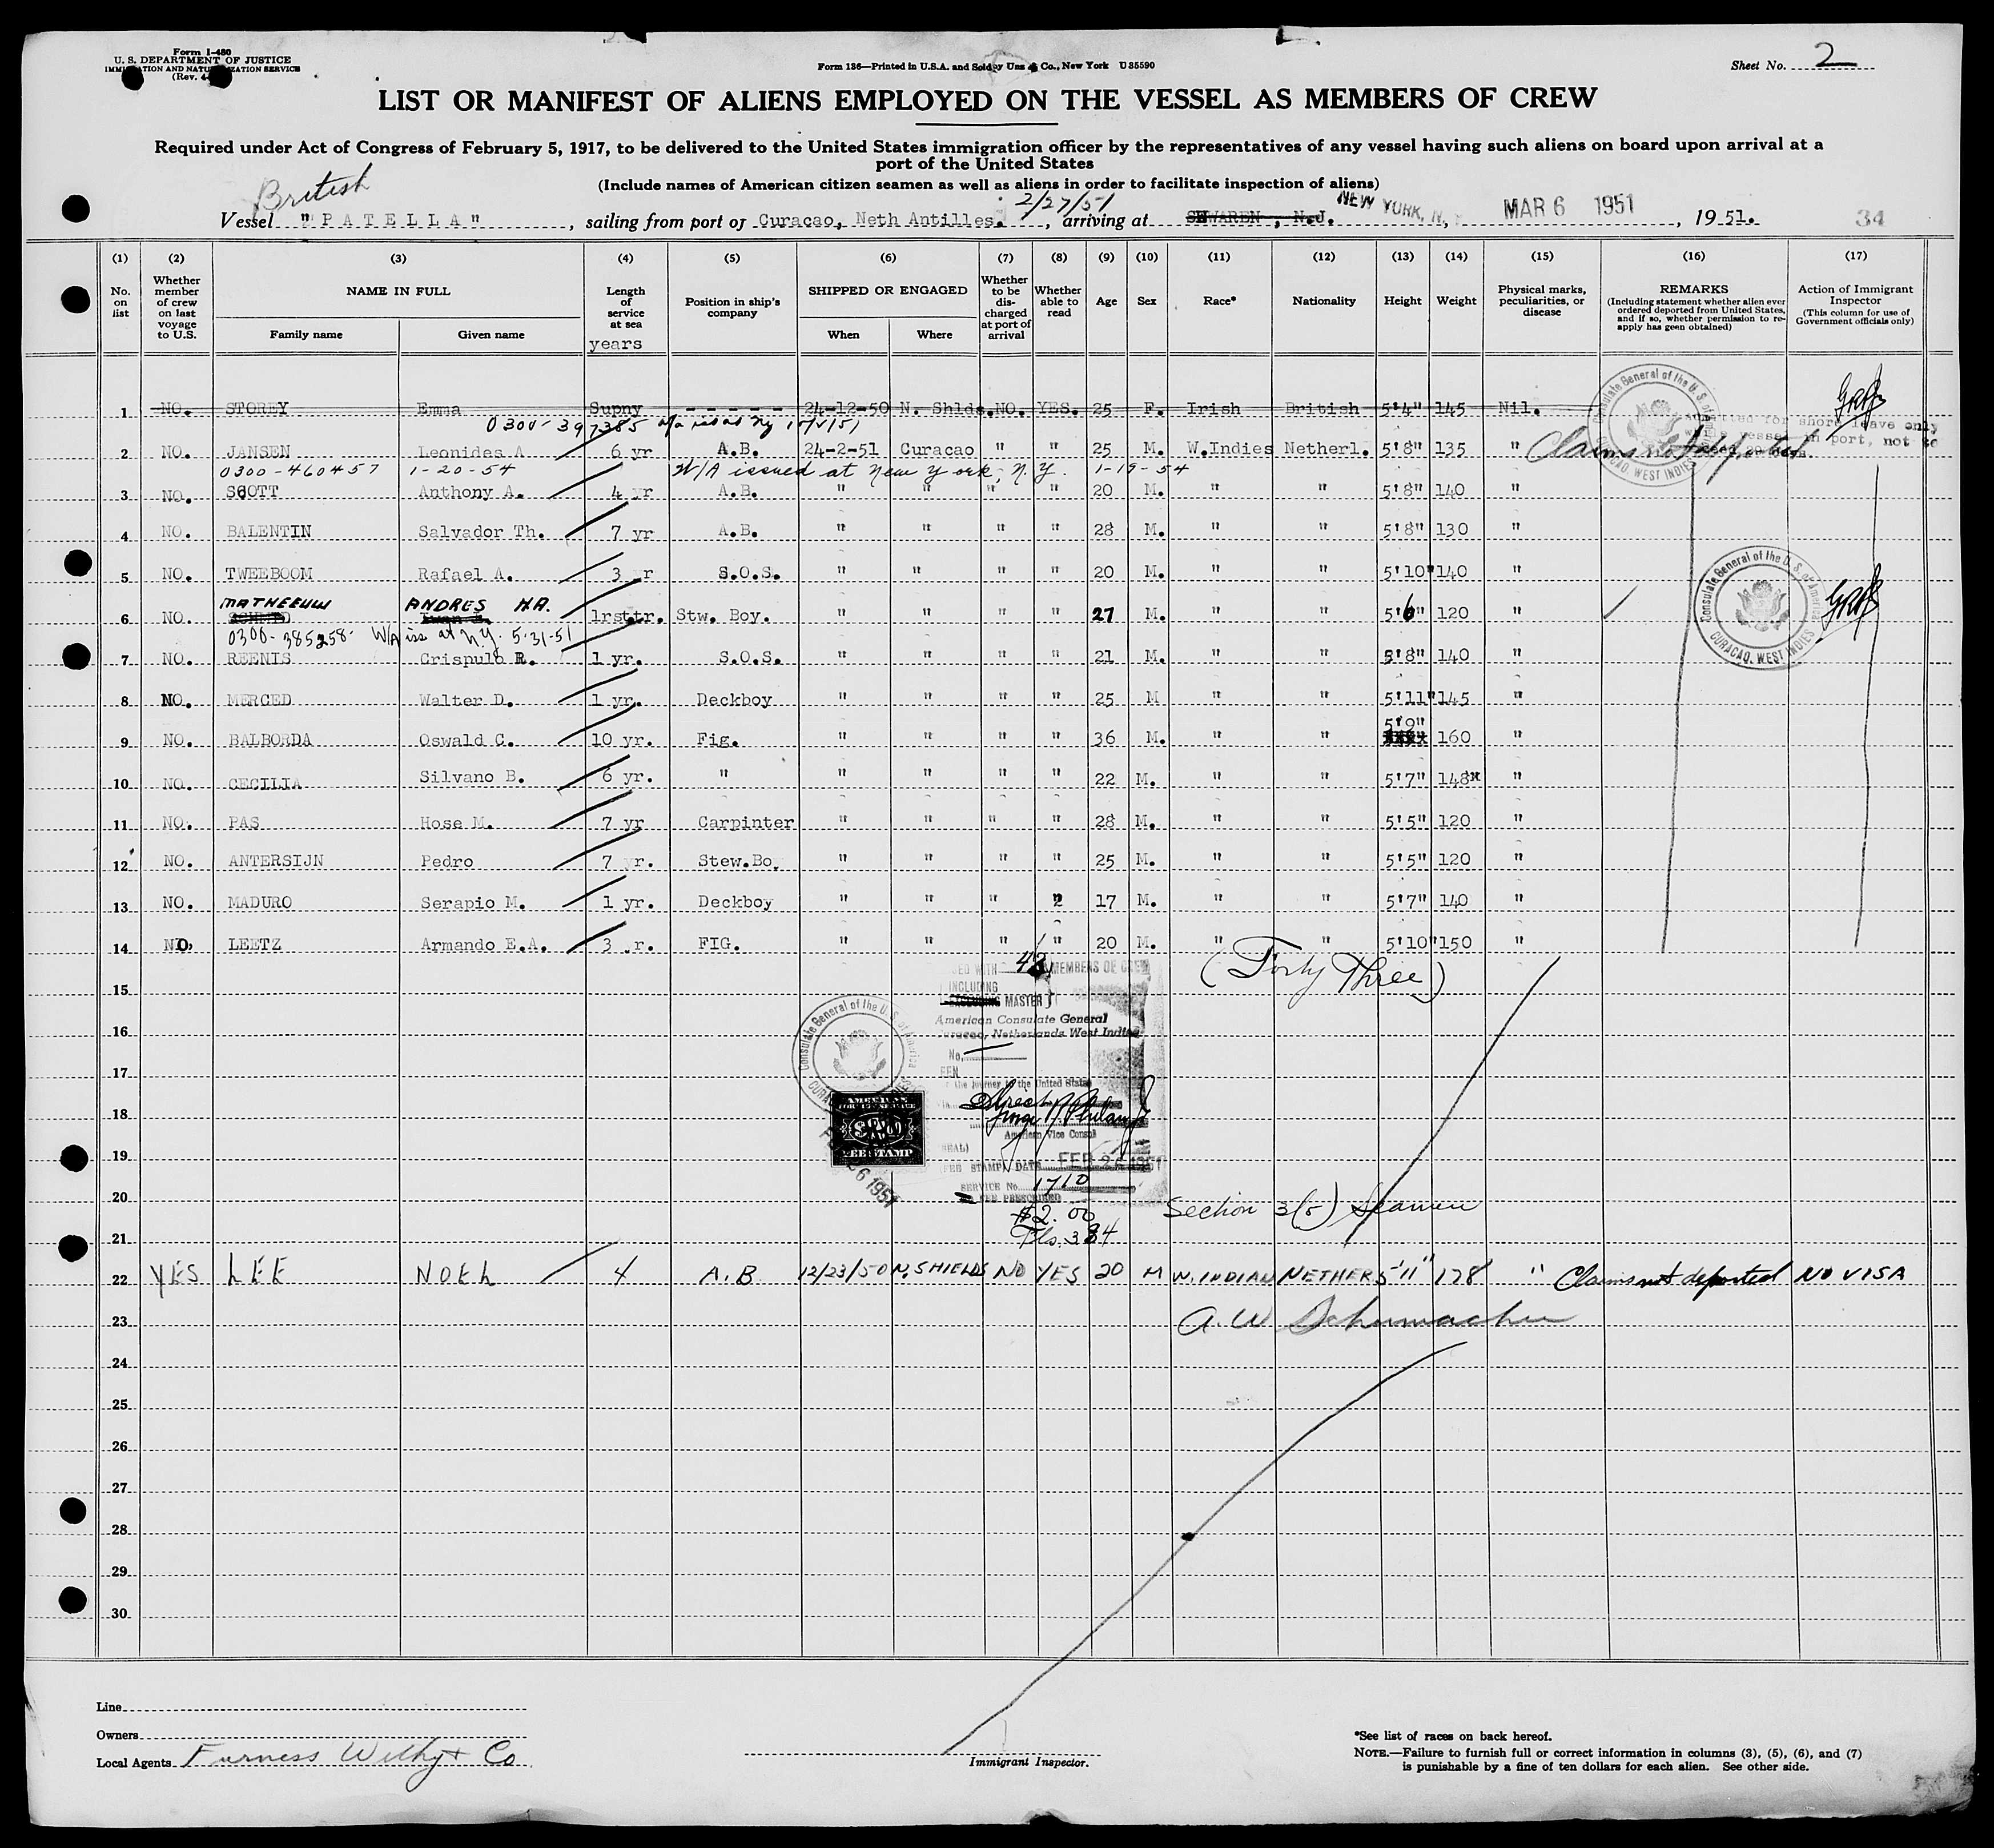 Form I-480
U. S. DEPARTMENT OF JUSTICE
IMMIGRATION AND NATURALIZATION SERVICE
(Rev. 4-
Form 136—Printed in U.S.A. and Sold by Unz & Co., New York U 35590
Sheet No. 2
LIST OR MANIFEST OF ALIENS EMPLOYED ON THE VESSEL AS MEMBERS OF CREW
Required under Act of Congress of February 5, 1917, to be delivered to the United States immigration officer by the representatives of any vessel having such aliens on board upon arrival at a
port of the United States
(Include names of American citizen seamen as well as aliens in order to facilitate inspection of aliens)
British
2/27/51
Vessel "PATELLA", sailing from port of Curacao, Neth Antilles., arriving at SEWAREN, N.J. NEW YORK, N. Y. MAR 6 1951, 1951. 34
(1) (2) (3) (4) (5) (6) (7) (8) (9) (10) (11) (12) (13) (14) (15) (16) (17)
No. on list
Whether member of crew on last voyage to U.S.
NAME IN FULL
Family name
Given name
Length of service at sea
years
Position in ship's company
SHIPPED OR ENGAGED
When
Where
Whether to be discharged at port of arrival
Whether able to read
Age
Sex
Race*
Nationality
Height
Weight
Physical marks, peculiarities, or disease
REMARKS
(Including statement whether alien ever ordered deported from United States, and if so, whether permission to reapply has geen obtained)
Action of Immigrant Inspector
(This column for use of Government officials only)
1 NO. STOREY Emma Supny - - - - - 24-12-50 N. Shlds. NO. YES. 25 F. Irish British 5'4" 145 Nil.
0300-397385
2 NO. JANSEN Leonides A. 6 yr A.B. 24-2-51 Curacao " " 25 M. W.Indies Netherl. 5'8" 135 " Claims not deported
0300-460457 1-20-54 W/A issued at New York, N.Y. 1-19-54
3 NO. SCOTT Anthony A. 4 yr A.B. " " " " 20 M. " " 5'8" 140 "
4 NO. BALENTIN Salvador Th. 7 yr A.B. " " " " 28 M. " " 5'8" 130 "
5 NO. TWEEBOOM Rafael A. 3 r S.O.S. " " " " 20 M. " " 5'10" 140 "
MATHEEUW ANDRES H.A.
6 NO. 1rsttr. Stw. Boy. " " " " 27 M. " " 5'6" 120 "
0300-385258 W/A iss at N.Y. 5-31-51
7 NO. REENIS Crispulo R. 1 yr. S.O.S. " " " " 21 M. " " 5'8" 140 "
8 NO. MERCED Walter D. 1 yr. Deckboy " " " " 25 M " " 5'11" 145 "
9 NO. BALBORDA Oswald C. 10 yr. Fig. " " " " 36 M. " " 5'9" 160 "
10 NO. CECILIA Silvano B. 6 yr. " " " " " 22 M. " " 5'7" 148 "
11 NO. PAS Hose M. 7 yr Carpinter " " " " 28 M. " " 5'5" 120 "
12 NO. ANTERSIJN Pedro 7 yr. Stew.Bo. " " " " 25 M. " " 5'5" 120 "
13 NO. MADURO Serapio M. 1 yr. Deckboy " " " 2 17 M. " " 5'7" 140 "
14 NO. LEETZ Armando E.A. 3 r. FIG. " " " " 20 M. " " 5'10" 150 "
Consulate General of the U. S. of America
CURACAO, WEST INDIES
Consulate General of the U. S. of America
CURACAO, WEST INDIES
for shore leave only
vessel in port, not to
43 MEMBERS OF CREW
(Forty Three)
15
INCLUDING
EXCLUDING MASTER
16
American Consulate General
Curacao, Netherlands West Indies
No.
17
the journey to the United States
Consulate General of the U. S. of America
18
AMERICAN
FEE STAMP
American Vice Consul
19
(FEE STAMP) DATE FEB 26 1951
FEB 26 1951
SERVICE No. 1710
FEE PRESCRIBED
20
$2.00
Section 3(5) Seamen
Fls. 3.84
21
22 YES LEE NOEL 4 A.B 12/23/50 N. SHIELDS NO YES 20 M W. INDIAN NETHER 5'11" 178 " Claims not deported NO VISA
23 A. W Schumacher
24
25
26
27
28
29
30
Line
Owners
Local Agents Furness Withy & Co
Immigrant Inspector.
*See list of races on back hereof.
NOTE.—Failure to furnish full or correct information in columns (3), (5), (6), and (7)
is punishable by a fine of ten dollars for each alien. See other side.